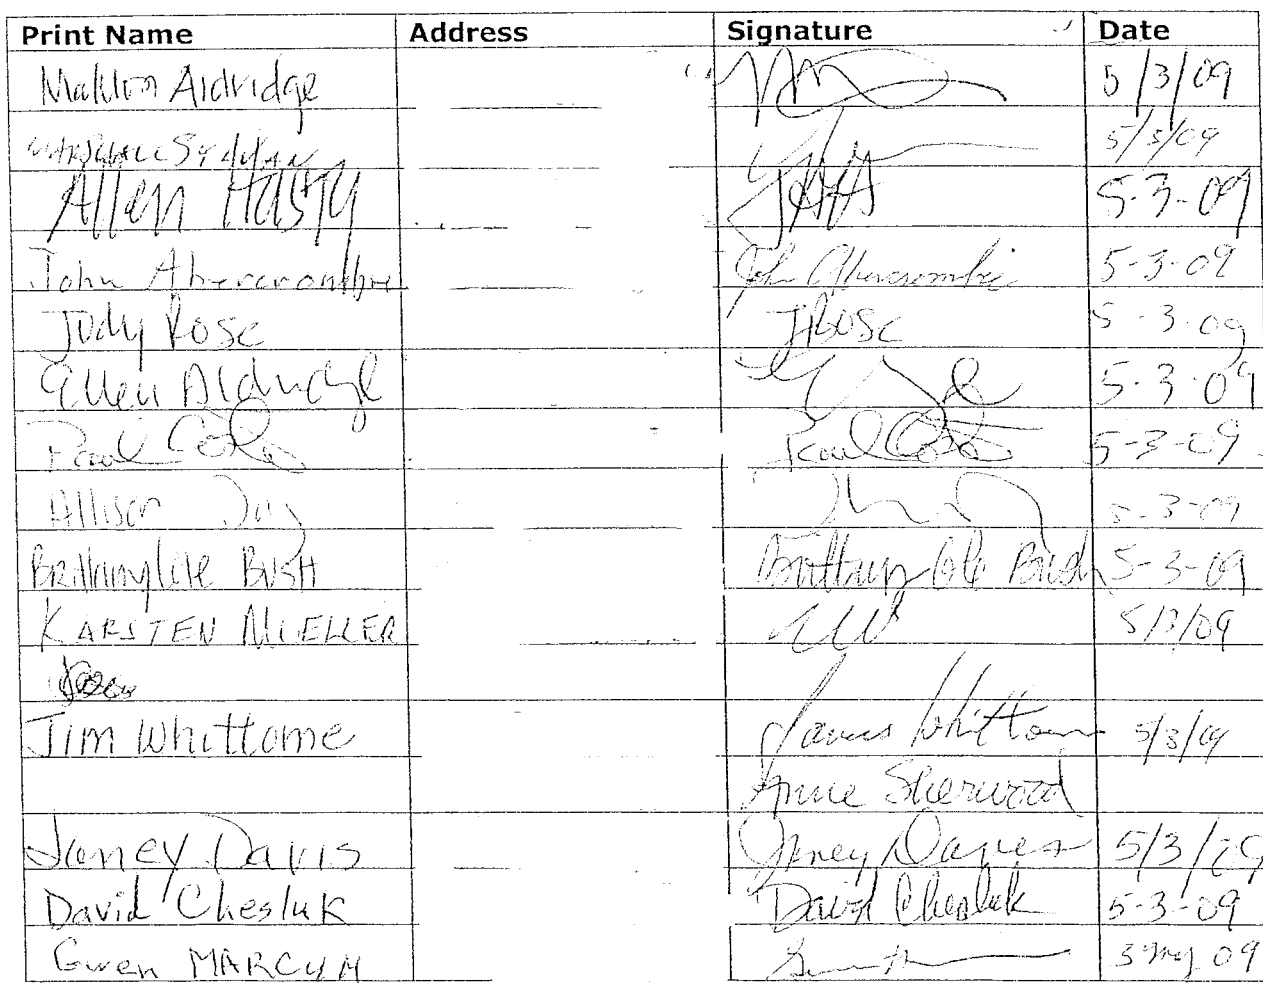 Print Name Address Signature Date
Mahlon Aldridge 5/3/09
MARSHALL 5/3/09
Allen Hasty 5-3-09
John Abercrombie John Abercrombie 5-3-09
Judy Rose JRose 5-3-09
Ellen Aldridge 5-3-09
Paul Cole Paul Cole 5-3-09
Allison Day 5-3-09
Brittany Cole BUSH Brittany Cole Bush 5-3-09
KARSTEN MUELLER 5/3/09
Jim Whittome James Whittome 5/3/09
Anne Sherwood
Janey Davis Janey Davis 5/3/09
David Chesluk David Chesluk 5-3-09
Gwen MARCUM 3 May 09